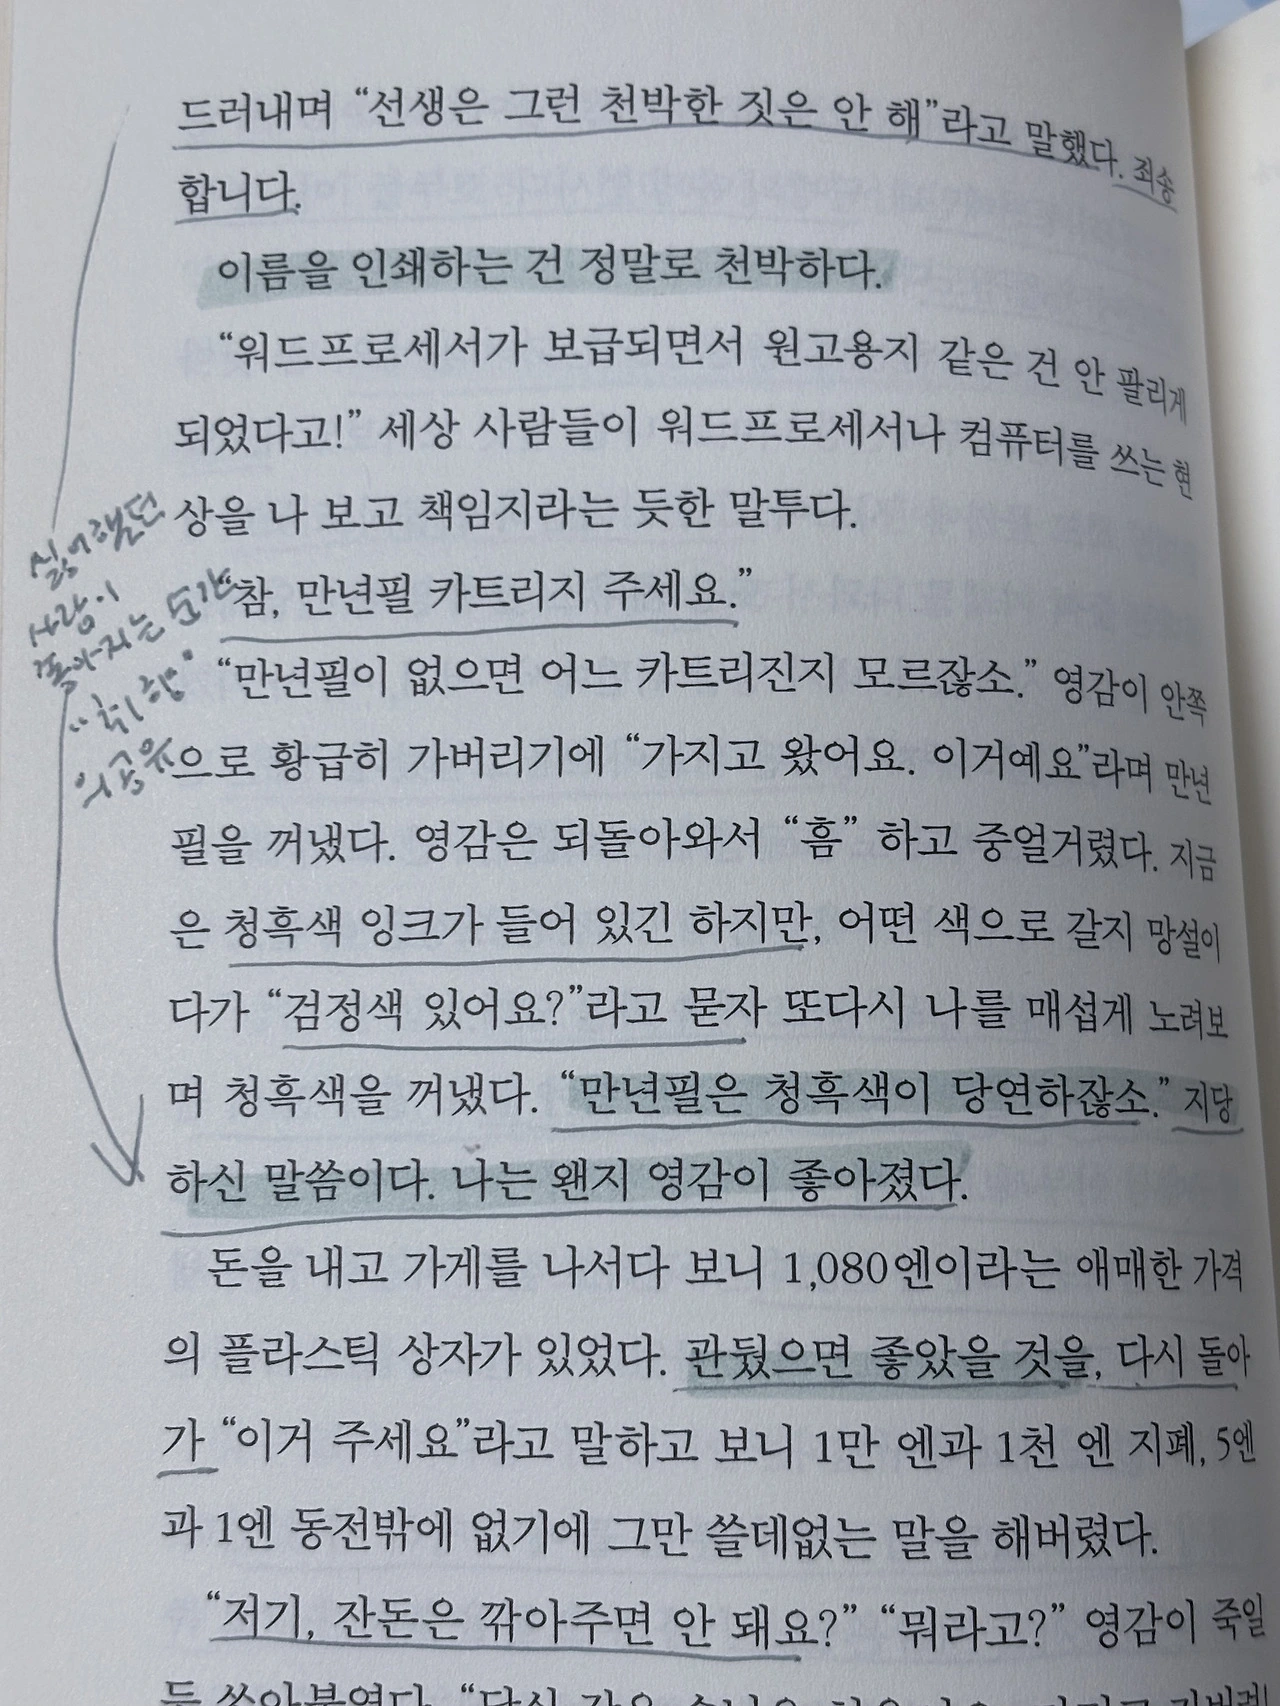 드러내며 “선생은 그런 천박한 짓은 안 해”라고 말했다. 죄송
합니다.
이름을 인쇄하는 건 정말로 천박하다.
“워드프로세서가 보급되면서 원고용지 같은 건 안 팔리게
되었다고!” 세상 사람들이 워드프로세서나 컴퓨터를 쓰는 현
상을 나 보고 책임지라는 듯한 말투다.
싫어했던
사람이
좋아지는 순간
“취향”
의 공유
“참, 만년필 카트리지 주세요.”
“만년필이 없으면 어느 카트리진지 모르잖소.” 영감이 안쪽
으로 황급히 가버리기에 “가지고 왔어요. 이거예요”라며 만년
필을 꺼냈다. 영감은 되돌아와서 “흠” 하고 중얼거렸다. 지금
은 청흑색 잉크가 들어 있긴 하지만, 어떤 색으로 갈지 망설이
다가 “검정색 있어요?”라고 묻자 또다시 나를 매섭게 노려보
며 청흑색을 꺼냈다. “만년필은 청흑색이 당연하잖소.” 지당
하신 말씀이다. 나는 왠지 영감이 좋아졌다.
돈을 내고 가게를 나서다 보니 1,080엔이라는 애매한 가격
의 플라스틱 상자가 있었다. 관뒀으면 좋았을 것을, 다시 돌아
가 “이거 주세요”라고 말하고 보니 1만 엔과 1천 엔 지폐, 5엔
과 1엔 동전밖에 없기에 그만 쓸데없는 말을 해버렸다.
“저기, 잔돈은 깎아주면 안 돼요?” “뭐라고?” 영감이 죽일
듯 쏘아붙였다. “당신 같은